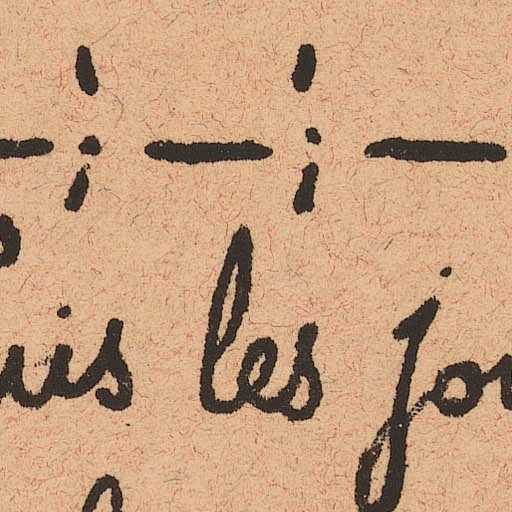 uis les jou